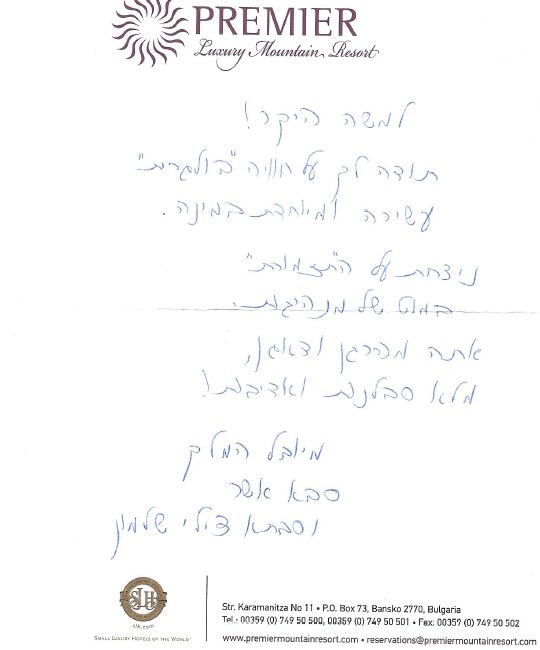 PREMIER
Luxury Mountain Resort
למשה היקר!
תודה לך על חוויה "בולגרית"
עשירה ומיוחדת במינה.
ניצחת על ה"תזמורת"
במוט של מנהיגות.
אתה מפרגן ודואג,
מלא סבלנות ואדיבות!
המלך
סבא אשר
וסבתא צילי שלמון
SLH
slh.com
SMALL LUXURY HOTELS OF THE WORLD
Str. Karamanitza No 11 • P.O. Box 73, Bansko 2770, Bulgaria
Tel.: 00359 (0) 749 50 500, 00359 (0) 749 50 501 • Fax. 00359 (0) 749 50 502
www.premiermountainresort.com • reservations@premiermountainresort.com